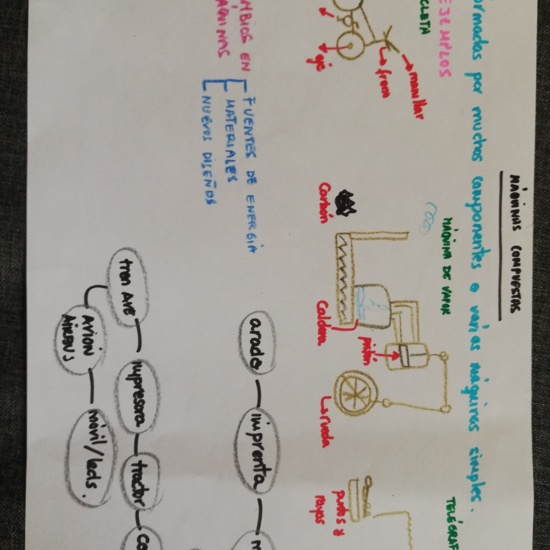 MÁQUINAS COMPUESTAS
ormadas por muchos componentes o varias máquinas simples.
EJEMPLOS
CLETA
manillar
freno
eje
MÁQUINA DE VAPOR
Carbón
Caldera
pistón
rueda
TELÉGRAF
puntos y
rayas
MBIOS EN
ÁQUINAS
FUENTES DE ENERGÍA
MATERIALES
NUEVOS DISEÑOS
arado
imprenta
tren AVE
impresora
tractor
co
AVIÓN
AIRBUS
móvil/leds.